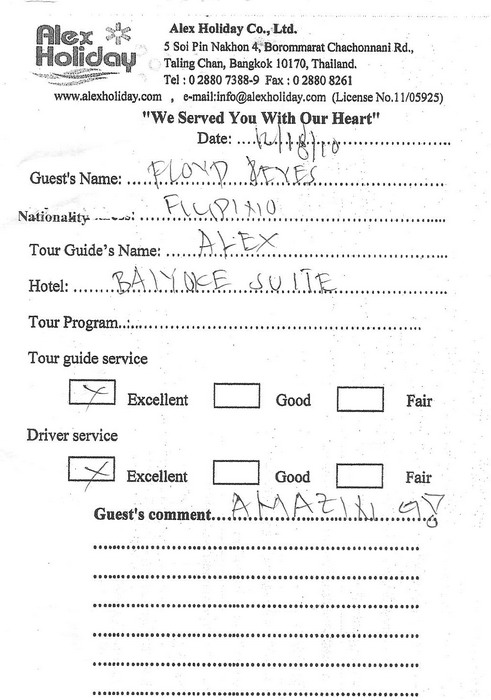 Alex Holiday
Alex Holiday Co., Ltd.
5 Soi Pin Nakhon 4, Borommarat Chachonnani Rd.,
Taling Chan, Bangkok 10170, Thailand.
Tel : 0 2880 7388-9 Fax : 0 2880 8261
www.alexholiday.com , e-mail:info@alexholiday.com (License No.11/05925)
"We Served You With Our Heart"
Date: 12/18/10
Guest's Name: FLOYD REYES
Nationality : FILIPINO
Tour Guide's Name: ALEX
Hotel: BAIYOKE SUITE
Tour Program..:
Tour guide service
X Excellent Good Fair
Driver service
X Excellent Good Fair
Guest's comment... AMAZING!